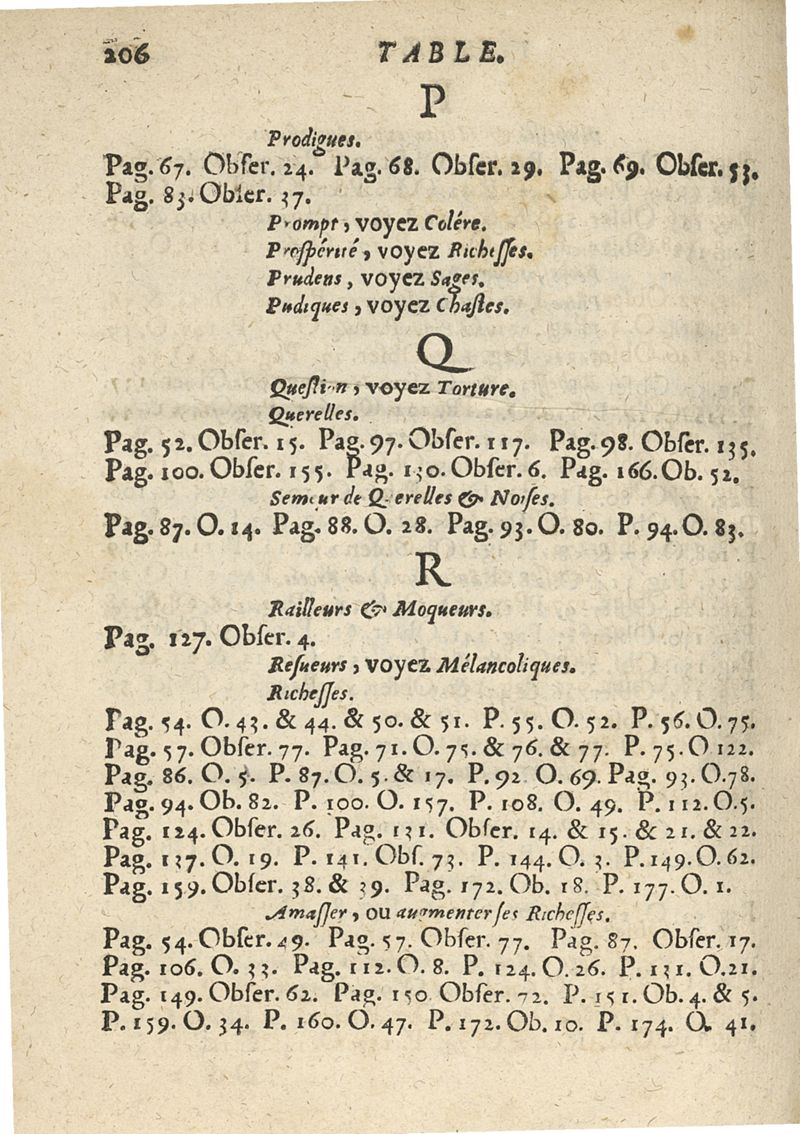 206 TABLE.
P
Prodigues.
Pag. 67. Obſer. 24. Pag. 68. Obſer. 29. Pag. 69. Obſer. 53.
Pag. 83. Obſer. 37.
Prompt, voyez Colére.
Proſpérité, voyez Richeſſes.
Prudens, voyez Sages.
Pudiques, voyez Chaſtes.
Q
Queſtion, voyez Torture.
Querelles.
Pag. 52. Obſer. 15. Pag. 97. Obſer. 117. Pag. 98. Obſer. 135.
Pag. 100. Obſer. 155. Pag. 130. Obſer. 6. Pag. 166. Ob. 52.
Semeur de Querelles & Noiſes.
Pag. 87. O. 14. Pag. 88. O. 28. Pag. 93. O. 80. P. 94. O. 83.
R
Railleurs & Moqueurs.
Pag. 127. Obſer. 4.
Reſueurs, voyez Mélancoliques.
Richeſſes.
Pag. 54. O. 43. & 44. & 50. & 51. P. 55. O. 52. P. 56. O. 75.
Pag. 57. Obſer. 77. Pag. 71. O. 75. & 76. & 77. P. 75. O 122.
Pag. 86. O. 5. P. 87. O. 5. & 17. P. 92 O. 69. Pag. 93. O. 78.
Pag. 94. Ob. 82. P. 100. O. 157. P. 108. O. 49. P. 112. O. 5.
Pag. 124. Obſer. 26. Pag. 131. Obſer. 14. & 15. & 21. & 22.
Pag. 137. O. 19. P. 141. Obſ. 73. P. 144. O. 3. P. 149. O. 62.
Pag. 159. Obſer. 38. & 39. Pag. 172. Ob. 18. P. 177. O. 1.
Amaſſer, ou augmenter ſes Richeſſes.
Pag. 54. Obſer. 49. Pag. 57. Obſer. 77. Pag. 87. Obſer. 17.
Pag. 106. O. 33. Pag. 112. O. 8. P. 124. O. 26. P. 131. O. 21.
Pag. 149. Obſer. 62. Pag. 150 Obſer. 72. P. 151. Ob. 4. & 5.
P. 159. O. 34. P. 160. O. 47. P. 172. Ob. 10. P. 174. O. 41.